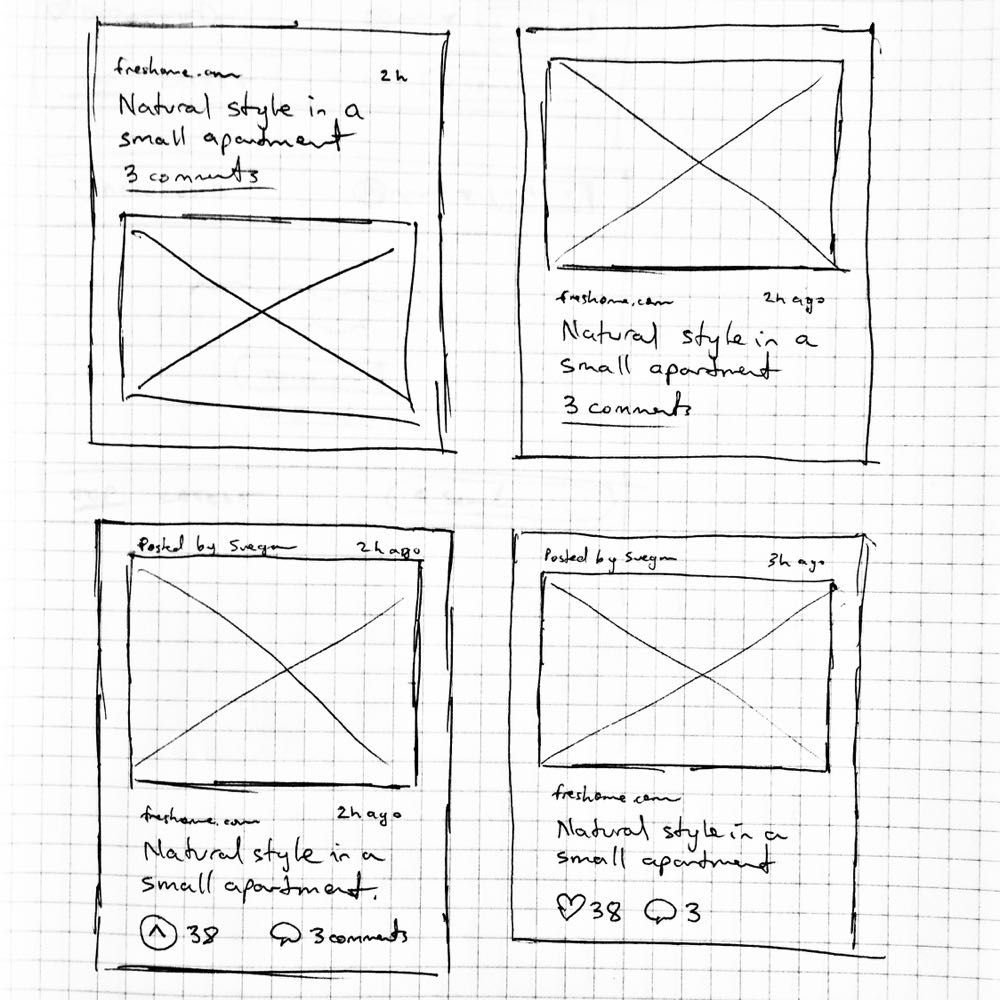 freshome.com 2h
Natural style in a
small apartment
3 comments
freshome.com 2h ago
Natural style in a
small apartment
3 comments
Posted by 2h ago
freshome.com 2h ago
Natural style in a
small apartment.
38 3 comments
Posted by 3h ago
freshome.com
Natural style in a
small apartment
38 3